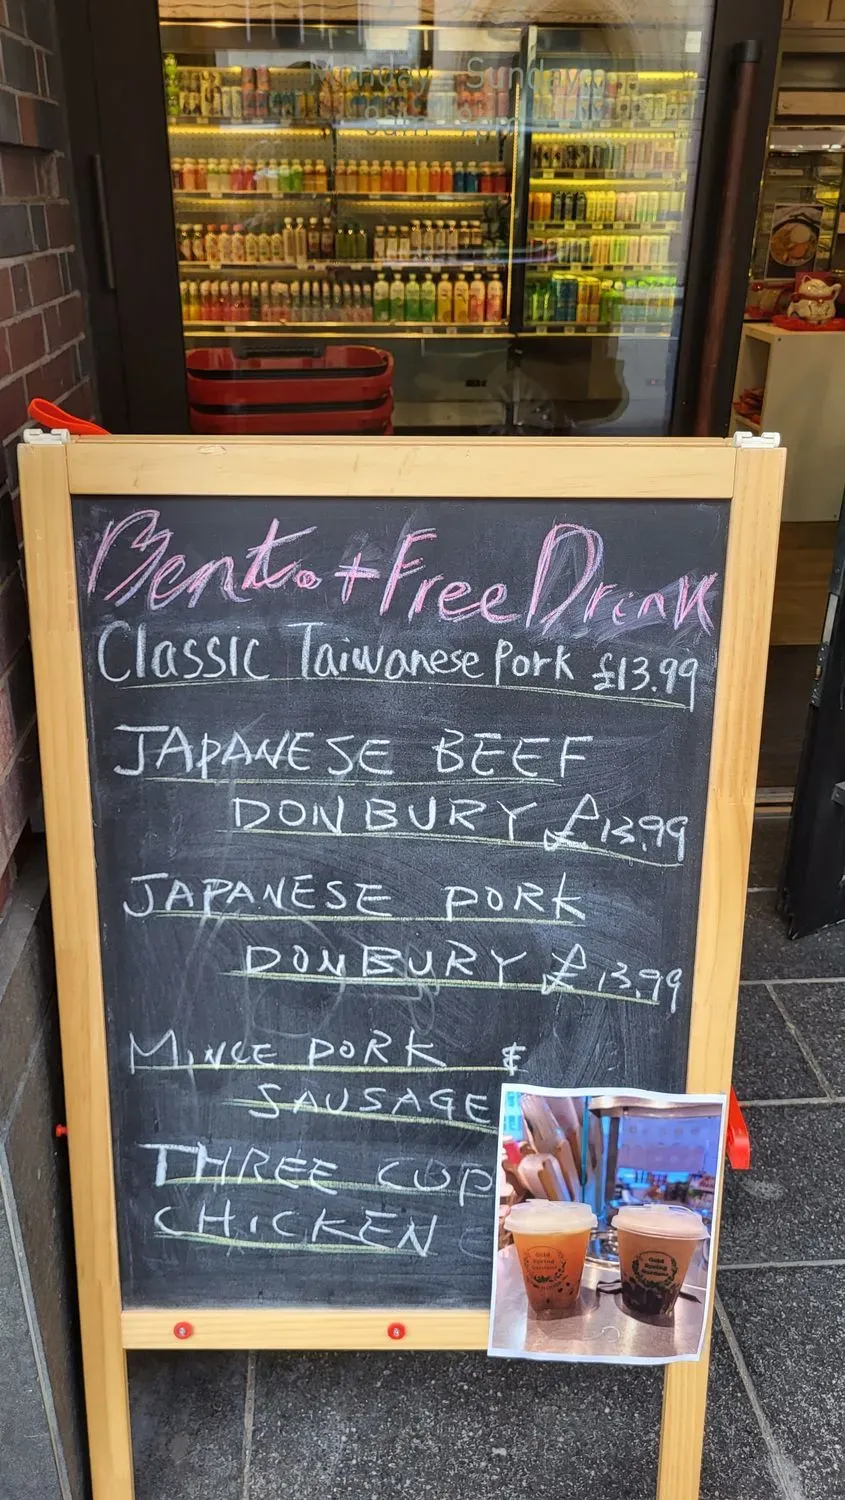 Monday - Sunday
9am - 9pm
Bento + Free Drink
Classic Taiwanese Pork £13.99
JAPANESE BEEF
DONBURY £13.99
JAPANESE PORK
DONBURY £13.99
MINCE PORK &
SAUSAGE
THREE CUP
CHICKEN
Gold
Spring
Gold
Spring